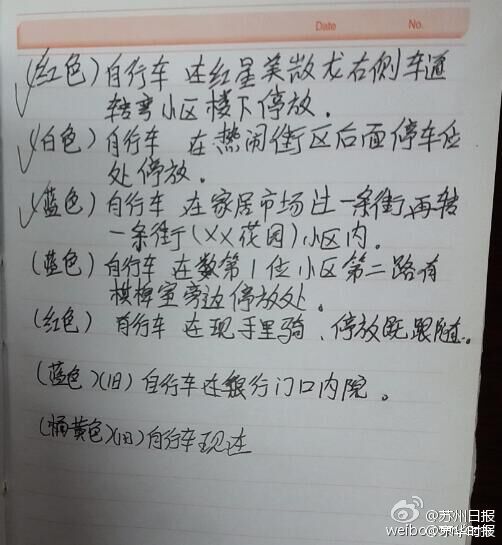 Date No.
(红色) 自行车 在红星美凯龙右侧车道
转弯小区楼下停放。
(白色) 自行车 在热闹街区后面停车位
处停放。
(蓝色) 自行车 在家居市场过一条街,再转
一条街(XX花园)小区内。
(蓝色) 自行车 在数第1位小区第二路有
棋牌室旁边停放处。
(红色) 自行车 在现手里骑、停放既跟随。
(蓝色)(旧) 自行车在银行门口内院。
(橘黄色)(旧)自行车现在
@苏州日报
weibo.com/